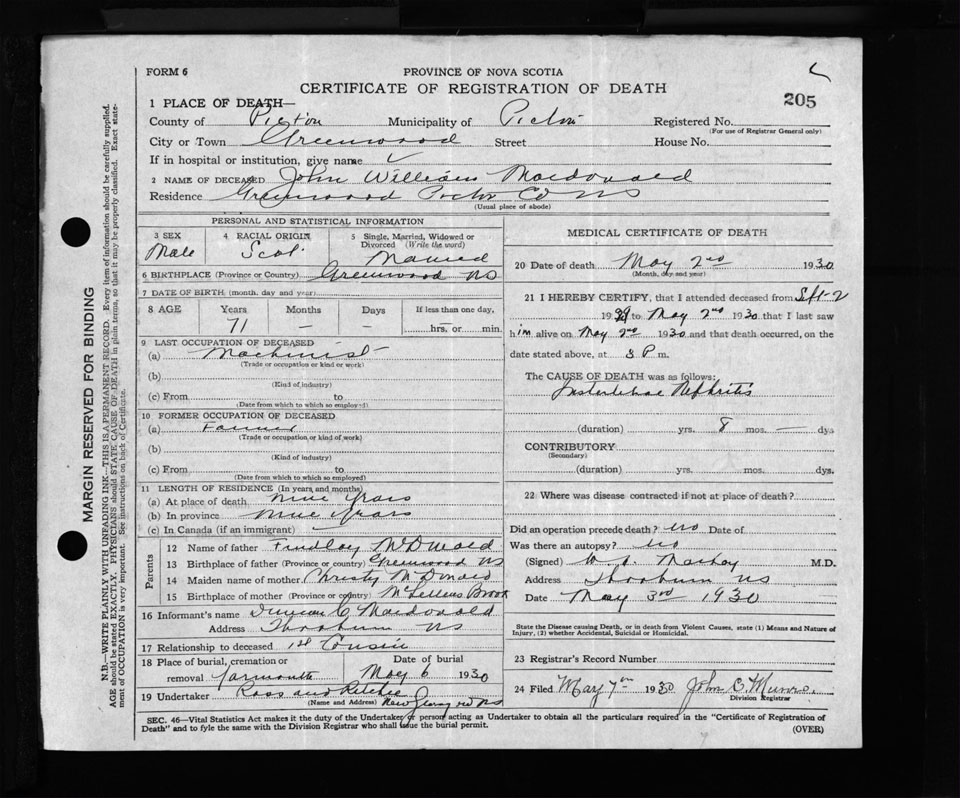 FORM 6
PROVINCE OF NOVA SCOTIA
CERTIFICATE OF REGISTRATION OF DEATH
205
1 PLACE OF DEATH—
County of Pictou Municipality of Pictou Registered No.
(For use of Registrar General only)
City or Town Greenwood Street House No.
If in hospital or institution, give name
2 NAME OF DECEASED John William Macdonald
Residence Greenwood Pictou Co NS
(Usual place of abode)
PERSONAL AND STATISTICAL INFORMATION
3 SEX Male
4 RACIAL ORIGIN Scot
5 Single, Married, Widowed or Divorced (Write the word) Married
6 BIRTHPLACE (Province or Country) Greenwood NS
7 DATE OF BIRTH (month, day and year)
8 AGE Years Months Days If less than one day,
71 — — hrs. or min.
9 LAST OCCUPATION OF DECEASED
(a) Machinist
(Trade or occupation or kind or work)
(b)
(Kind of industry)
(c) From to
(Date from which to which so employed)
10 FORMER OCCUPATION OF DECEASED
(a) Farmer
(Trade or occupation or kind of work)
(b)
(Kind of industry)
(c) From to
(Date from which to which so employed)
11 LENGTH OF RESIDENCE (In years and months)
(a) At place of death Nine Years
(b) In province Nine Years
(c) In Canada (if an immigrant)
Parents
12 Name of father Findlay McDonald
13 Birthplace of father (Province or country) Greenwood NS
14 Maiden name of mother Christy McDonald
15 Birthplace of mother (Province or country) McLellens Brook
16 Informant's name Duncan C Macdonald
Address Thorburn NS
17 Relationship to deceased 1st Cousin
18 Place of burial, cremation or removal Date of burial
May 6 1930
19 Undertaker Ross and Ritchie
(Name and Address) New Glasgow NS
MEDICAL CERTIFICATE OF DEATH
20 Date of death May 2nd 1930
(Month, day and year)
21 I HEREBY CERTIFY, that I attended deceased from Sept-2
1929 to May 2nd 1930 that I last saw
him alive on May 2nd 1930 and that death occurred, on the
date stated above, at 3 P m.
The CAUSE OF DEATH was as follows:
Nephritis
(duration) yrs. 8 mos. — dys
CONTRIBUTORY
(Secondary)
(duration) yrs. mos. dys.
22 Where was disease contracted if not at place of death?
Did an operation precede death? no Date of
Was there an autopsy? no
(Signed) M.D.
Address Thorburn NS
Date May 3rd 1930
State the Disease causing Death, or in death from Violent Causes, state (1) Means and Nature of
Injury, (2) whether Accidental, Suicidal or Homicidal.
23 Registrar's Record Number
24 Filed May 7th 1930 John C. Munro.
Division Registrar
SEC. 46—Vital Statistics Act makes it the duty of the Undertaker or person acting as Undertaker to obtain all the particulars required in the "Certificate of Registration of
Death" and to fyle the same with the Division Registrar who shall issue the burial permit.
(OVER)
MARGIN RESERVED FOR BINDING
N.B.—WRITE PLAINLY WITH UNFADING INK—THIS IS A PERMANENT RECORD. Every item of information should be carefully supplied.
AGE should be stated EXACTLY. PHYSICIANS should STATE CAUSE OF DEATH in plain terms, so that it may be properly classified. Exact statement of OCCUPATION is very important. See instructions on back of Certificate.